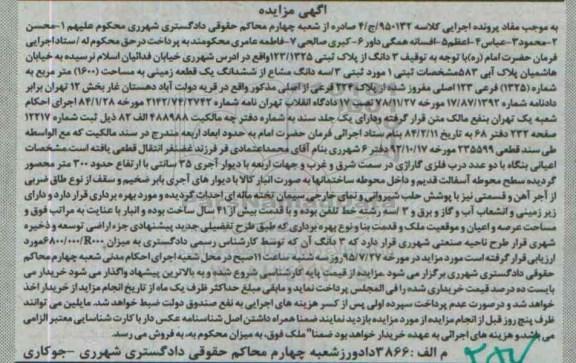 آگهی مزایده
به موجب مفاد پرونده اجرایی کلاسه ۹۵۰۱۳۲/ج/۴ صادره از شعبه چهارم محاکم حقوقی دادگستری شهرری محکوم علیهم ۱-محسن
۲-محمود۳-عباس۴-اعظم۵-افسانه همگی داور ۶-کبری صالحی ۷-فاطمه عامری محکومند به پرداخت در حق محکوم له / ستاد اجرایی
فرمان حضرت امام (ره)با توجه به توقیف ۳ دانگ از پلاک ثبتی ۱۲۳/۱۳۲۵واقع در ادرس شهرری خیابان فدائیان اسلام نرسیده به خیابان
هاشمیان پلاک آبی ۵۸۳مشخصات ثبتی ۱ مورد ثبتی ۳/سه دانگ مشاع از ششدانگ یک قطعه زمینی به مساحت (۱۶۰۰) متر مربع به
شماره (۱۳۲۵) فرعی ۱۲۳ اصلی مفروز شده از پلاک فرعی از اصلی مذکور واقع در قریه دولت آباد دهستان غار بخش ۱۲ تهران برابر
دادنامه شماره ۱۷/۸۷/۱۳۹۲ مورخه دادگاه انقلاب تهران نامه شماره مورخه ۸۴/۱/۲۸ اجرای احکام
شعبه یک تهران بنفع مالک متن قرار گرفته ودارای یک جلد سند به شماره دفتر چه مالکیت ۴۸۸۹۸۸ الف ۸۲ ذیل ثبت ۱۲۲۱۷
صفحه ۲۳۲ دفتر ۶۸ به تاریخ ۸۴/۲/۱۱ بنام ستاد اجرائی فرمان حضرت امام به حدود ابعاد اربعه مندرج در سند مالکیت که مع الواسطه
طی سند قطعی ۲۳۵۵۹۹ مورخه ۹۲/۱۰/۱۷ دفتر ۶ شهرری بنام آقای محمداعتمادی فر فرزند غضنفر انتقال قطعی یافته است.مشخصات
اعیانی بنگاه با دو عدد درب فلزی گاراژی در سمت شرق و غرب و جهات اربعه با دیوار آجری ۳۵ سانتی با ارتفاع حدود ۳۰۰ متر محصور
گردیده سطح محوطه آسفالت قدیم و داخل محوطه ساختمانها به صورت انبار کالا با دیوار های آجری بابر ضخیم و سقف از نوع طاق ضربی
از آجر آهن و قسمتی نیز با پوشش حلب شیروانی و نمای خارجی سیمان تخته ماله ای احداث گردیده و مورد بهره برداری قرار دارد و دارای
زیر زمینی و انشعاب آب و گاز و برق و ۳/سه رشته خط تلفن بوده و با قدمت بیش از ۴۱ سال ساخت بوده و انبار با عنایت به مراتب فوق و
مساحت عرصه و اعیان و موقعیت ملک و قدمت بنا و نوع بهره برداری که طبق طرح تفصیلی جدید پیشنهادی جزء اراضی توسعه و ذخیره
شهری قرار طرح ناحیه صنعتی شهرری قرار دارد که ۳ دانگ آن که توسط کارشناس رسمی دادگستری به میزان مورد
ارزیابی قرار گرفته است مورد مزایده در مورخه ۹۵/۷/۲۷روز سه شنبه ساعت ۱۱صبح در محل شعبه اجرای احکام مدنی شعبه چهارم محاکم
حقوقی دادگستری شهرری برگزار می شود .مزایده از قیمت پایه کارشناسی شروع شده و به بالاترین پیشنهاد واگذار می شود خریدار می
بایست ده درصد قیمت خریداری شده را فی المجلس پرداخت نماید و مابقی مبلغ حداکثر ظرف یک ماه از تاریخ انجام مزایده از خریدار اخذ
خواهد شد و در صورت عدم پرداخت سپرده اولی پس از کسر هزینه های اجرایی به نفع صندوق دولت ضبط خواهد شد. مایلین می توانند
ظرف پنج روز قبل از انجام مزایده از مورد مزایده بازدید نمایند ضمنا همراه داشتن اصل شناسنامه عکس دار یا کارت شناسایی معتبر الزامی
می باشد،و هزینه های اجرائی به عهده خریدار خواهد بود ضمنا" ملک فوق، به میزان محکوم به، به فروش می رسد.
م الف :۳۸۶۶دادورزشعبه چهارم محاکم حقوقی دادگستری شهرری -جوکاری